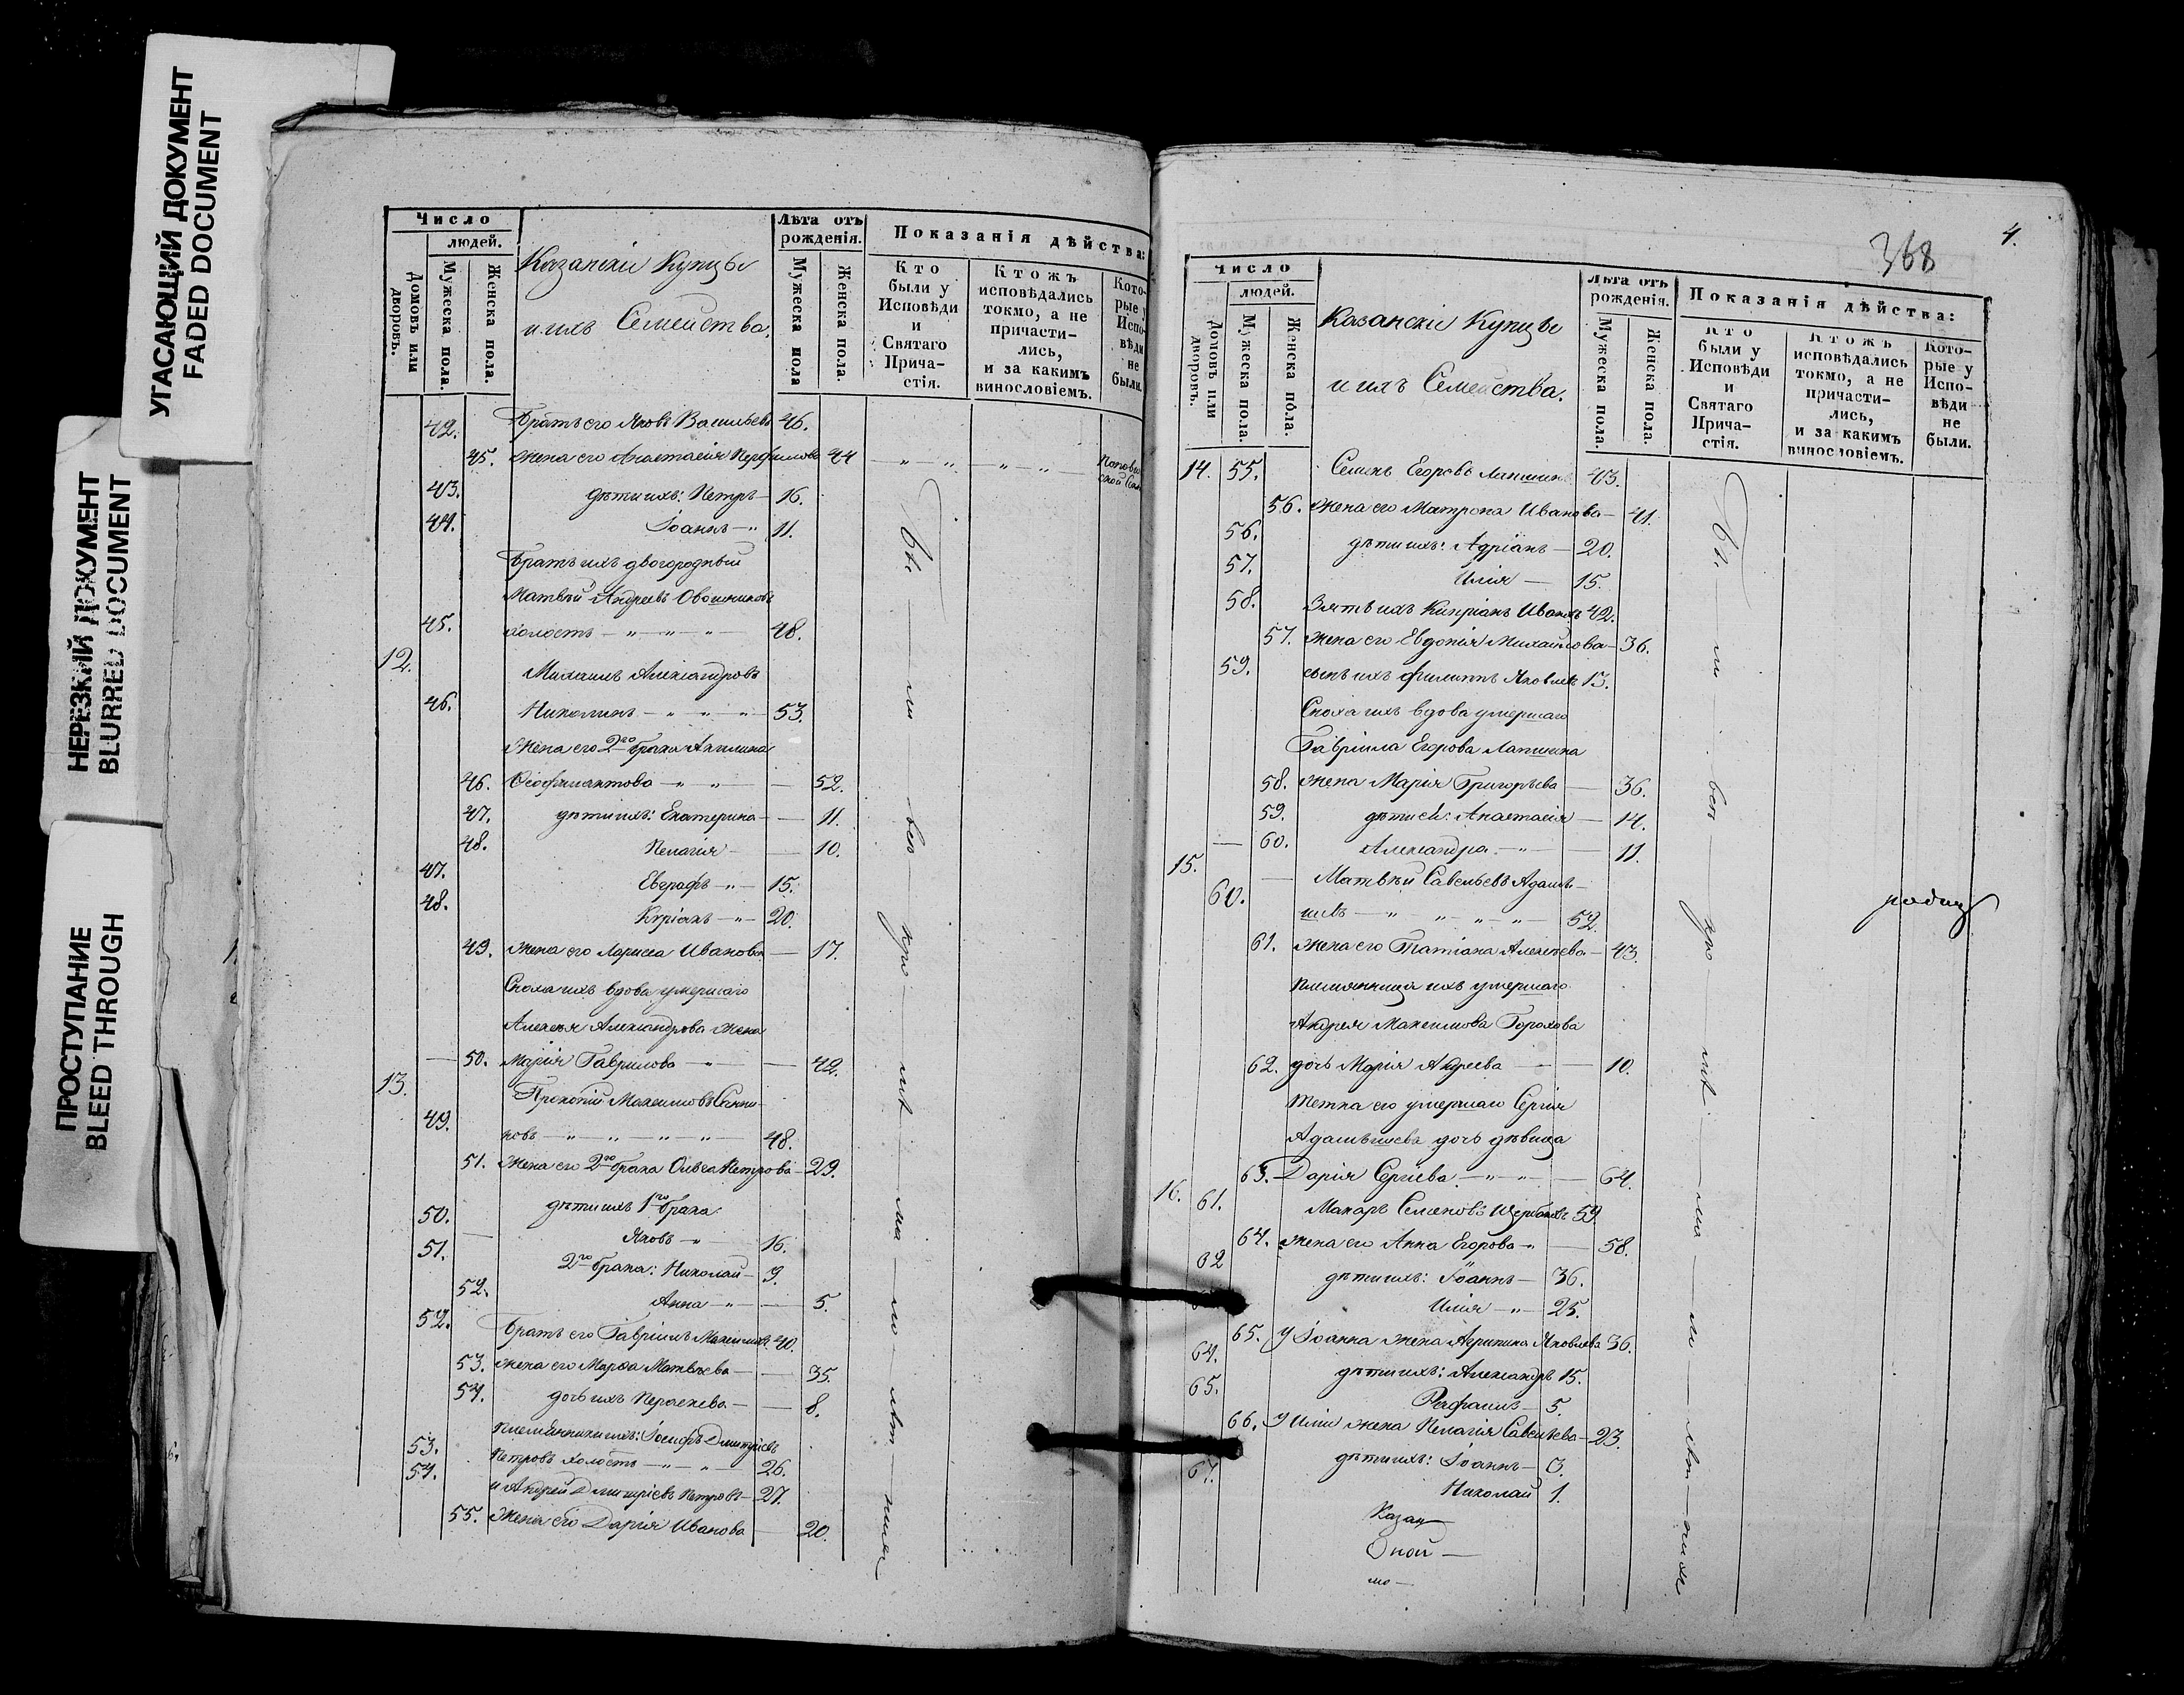 УГАСАЮЩИЙ ДОКУМЕНТ
FADED DOCUMENT
НЕРЕЗКИЙ ДОКУМЕНТ
BLURRED DOCUMENT
ПРОСТУПАНИЕ
BLEED THROUGH
Число
людей.
Домовъ или дворовъ.
Мужеска пола.
Женска пола.
Казанскіе Купцы
и ихъ Семейства.
Лѣта отъ рожденія.
Мужеска пола
Женска пола.
Показанія дѣйства:
Кто были у Исповѣди и Святаго Прича-стія.
Ктожъ исповѣдались токмо, а не причасти-лись, и за какимъ винословіемъ.
Кото-рые у Испо-вѣди не были.
42. Братъ его Яковъ Васильевъ 46.
45. Жена его Анастасія Перфилова 44
43. дѣти ихъ: Петръ — 16.
44. Іоаннъ — " 11.
Братъ ихъ двоюродный
Матвѣй Андреевъ Овошниковъ
45. холостъ — " — " — " — 48.
12. Михаилъ Александровъ
46. Никелинъ — " — " — " — 53.
Жена его 2го брака Акилина
46. Ѳеофилактова — " — " — 52.
47. дѣти ихъ: Екатерина — 11.
48. Пелагія — 10.
47. Евграфъ — " — 15.
48. Кѵріакъ — " — 20.
49. Жена его Лариса Иванова — 17.
Сноха ихъ вдова умершаго
Алексѣя Александрова жена
50. Марія Гаврилова — " — 42.
13. Прокопій Максимовъ
49. ковъ — " — " — " — " — 48.
51. Жена его 2го брака Ольга Петрова — 29.
дѣти ихъ 1го брака:
50. Яковъ — " 16.
51. 2го брака: Николай — 9.
52. Анна — " — 5.
52. Братъ его Гавріилъ Максимовъ 40.
53. Жена его Марѳа Матвѣева — 35.
54. дочь ихъ Параскева — 8.
Племянники ихъ: Іосифъ Дмитріевъ
53. Петровъ холостъ — " — " — 26.
54. и Андрей Дмитріевъ Петровъ — 27.
55. Жена его Дарія Иванова — 20.
368
4.
Число
людей.
Домовъ или дворовъ.
Мужеска пола.
Женска пола.
Казанскіе Купцы
и ихъ Семейства.
Лѣта отъ рожденія.
Мужеска пола.
Женска пола.
Показанія дѣйства:
Кто были у Исповѣди и Святаго Прича-стія.
Ктожъ исповѣдались токмо, а не причасти-лись, и за какимъ винословіемъ.
Кото-рые у Испо-вѣди не были.
14. 55. Семенъ Егоровъ Лапшинъ 43.
56. Жена его Матрона Иванова — 41.
56. дѣти ихъ: Адріанъ — 20.
57. Илія — 15.
58. Зять ихъ Кипріанъ Ивановъ 42.
57. Жена его Евдокія Михайлова — 36.
59. сынъ ихъ Филиппъ Яковлевъ 13.
Сноха ихъ вдова умершаго
Гавріила Егорова Лапшина
58. Жена Марія Григорьева — 36.
59. дѣти ея: Анастасія — 14.
60. Александра — " — 11.
15. Матвѣй Савельевъ Адамы-
60. шевъ — " — " — " — " — 52.
61. Жена его Татіана Алексѣева — 43.
Племянница ихъ умершаго
Андрея Максимова Горохова
62. дочь Марія Андреева — 10.
Тетка его умершаго Сергія
Адамышева дочь дѣвица
63. Дарія Сергіева — " — " — 64.
16. 61. Макаръ Семеновъ Щербаковъ 59.
64. Жена его Анна Егорова — " — 58.
62 дѣти ихъ: Іоаннъ — 36.
Илія — " — 25.
65. У Іоанна жена Агрипина Яковлева 36.
64. дѣти ихъ: Александръ 15.
65. Рафаилъ — 5.
66. У Иліи жена Пелагія Савельева — 23.
дѣти ихъ: Іоаннъ — 3.
67. Николай 1.
Казан
Оной —